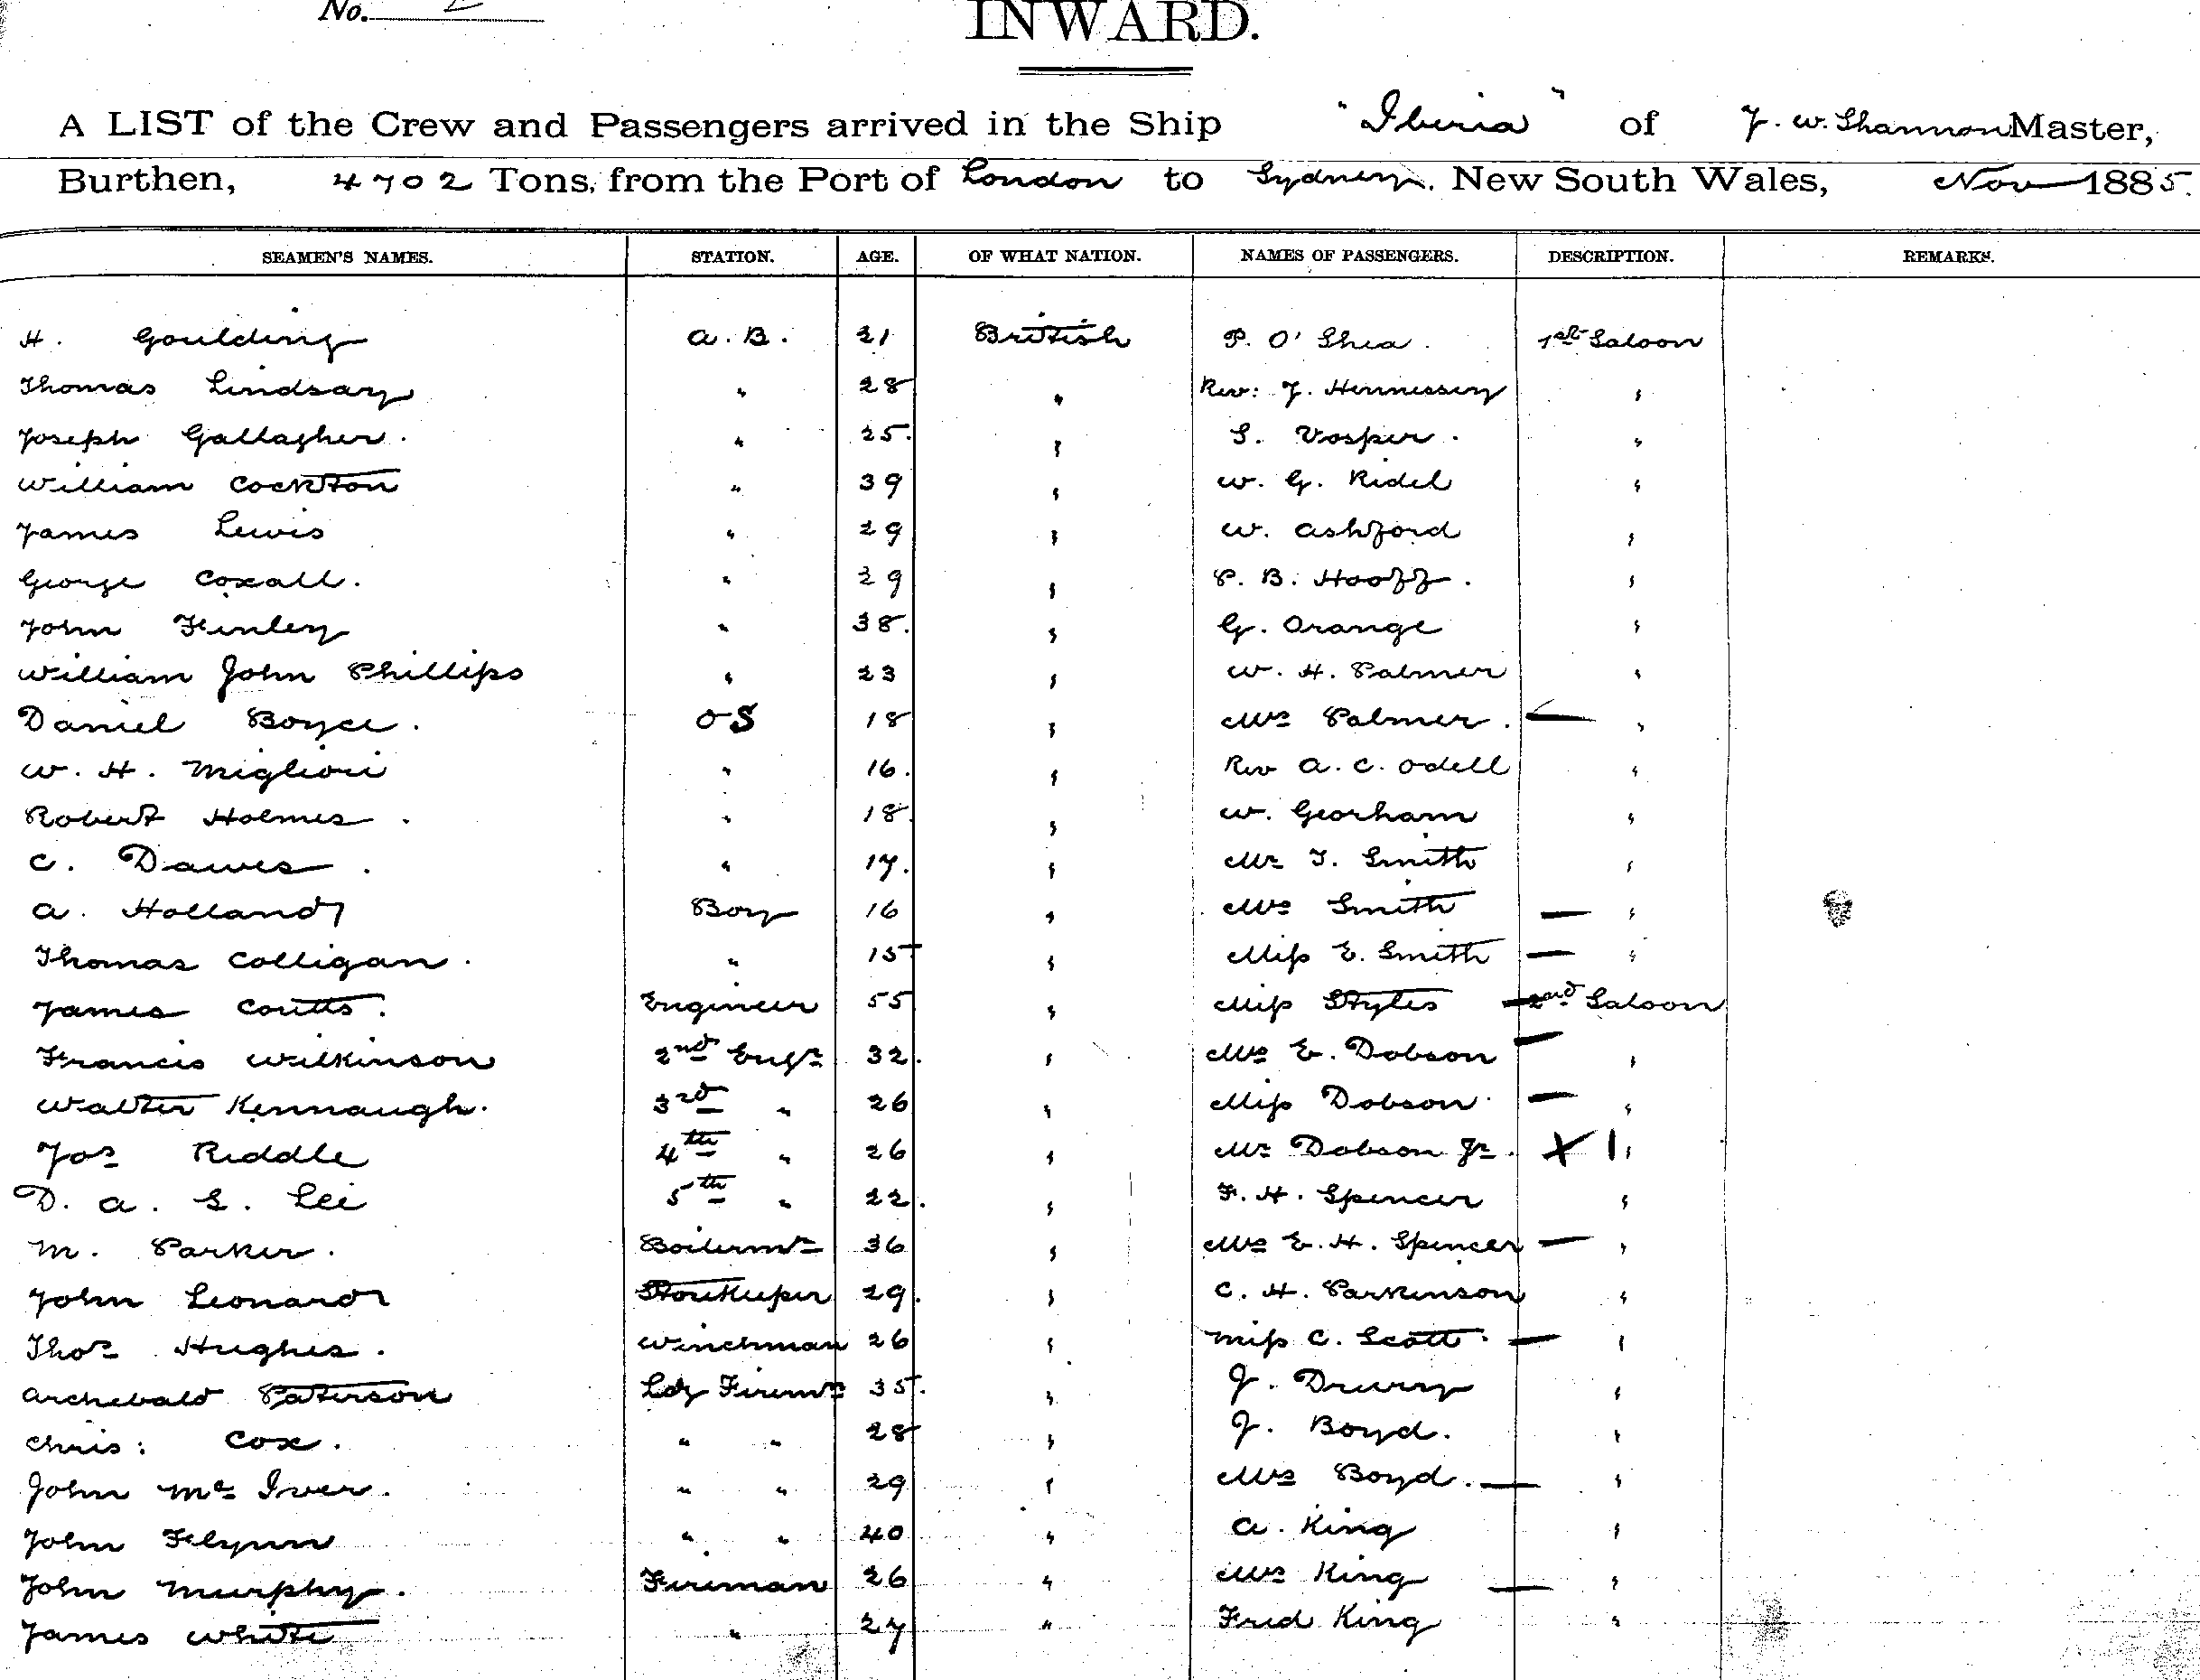 No. 2
INWARD.
A LIST of the Crew and Passengers arrived in the Ship "Iberia" of J. W. Shannon Master,
Burthen, 4702 Tons, from the Port of London to Sydney. New South Wales, Nov 1885.
SEAMEN'S NAMES. STATION. AGE. OF WHAT NATION. NAMES OF PASSENGERS. DESCRIPTION. REMARKS.
H. Goulding A.B. 21 British P. O'Shea. 1st Saloon
Thomas Lindsay " 28 " Rev: J. Hennessey "
Joseph Gallagher. " 25. " S. Vosper. "
William Cockton " 39 " W. G. Ridel "
James Lewis " 29 " W. Ashford "
George Coxall. " 29 " P. B. Hooff. "
John Finley " 38. " G. Orange "
William John Phillips " 23 " W. H. Palmer "
Daniel Boyce. OS 18 " Mrs Palmer. — "
W. H. Migliori " 16. " Rev A. C. Odell "
Robert Holmes. " 18. " W. Georham "
C. Dawes. " 17. " Mr T. Smith "
A. Holland Boy 16 " Mrs Smith — "
Thomas Colligan. " 15 " Miss E. Smith — "
James Coutts. Engineer 55 " Miss Styles — 2nd Saloon
Francis Wilkinson 2nd Engr 32. " Mrs E. Dobson — "
Walter Kennaugh. 3rd " 26 " Miss Dobson — "
Jos Riddle 4th " 26 " Mr Dobson Jr. X 1 "
D. A. S. Lee 5th " 22. " F. H. Spencer "
M. Parker. Boilermr 36 " Mrs E. H. Spencer — "
John Leonard Storekeeper 29. " C. H. Parkinson "
Thos Hughes. Winchman 26 " Miss C. Scott. — "
Archebald Paterson Ldg Firemn 35. " J. Drury "
Chris: Cox. " " 28 " J. Boyd. "
John Mc Iver. " " 29 " Mrs Boyd. — "
John Flynn " " 40 " A. King "
John Murphy. Fireman 26 " Mrs King — "
James White " 27 " Fred King "